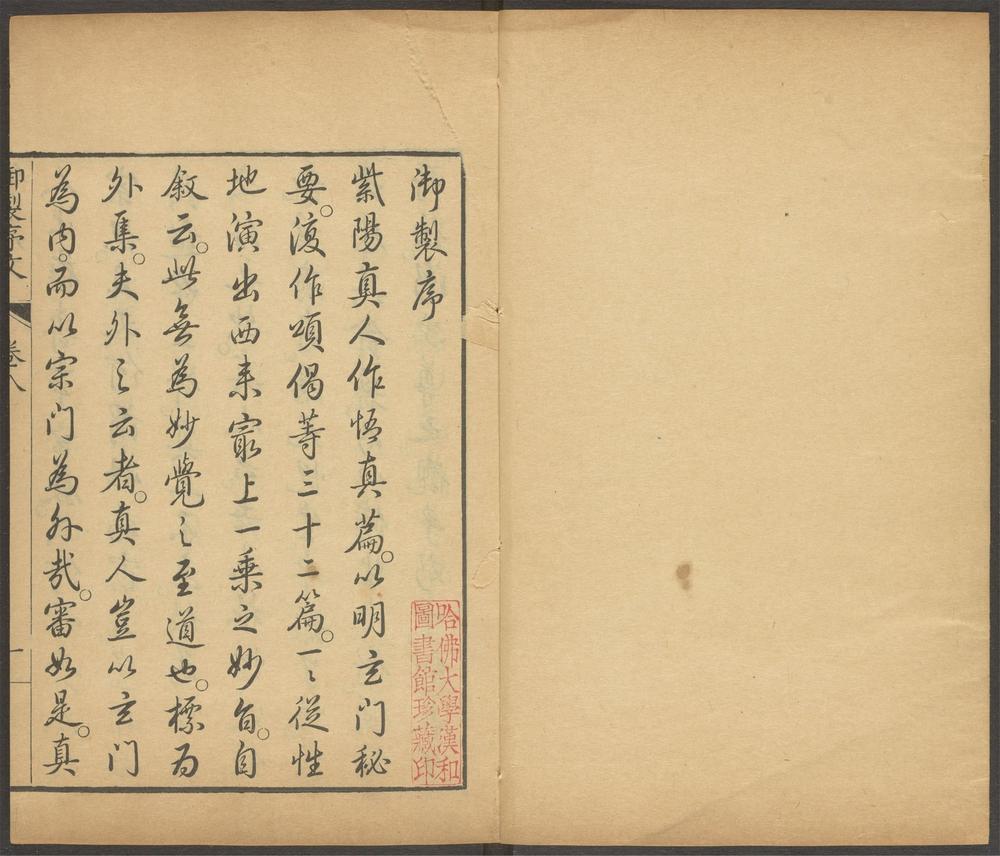 御製序
紫陽真人作悟真篇。以明玄门秘
要。復作頌偈等三十二篇。一〻從性
地演出西来最上一乗之妙旨。自
敘云。此無為妙覺〻至道也。標為
外集。夫外〻云者。真人豈以玄门
為内。而以宗门為外哉。審如是。真
御製序文
卷八
一
哈佛大學漢和
圖書館珍藏印